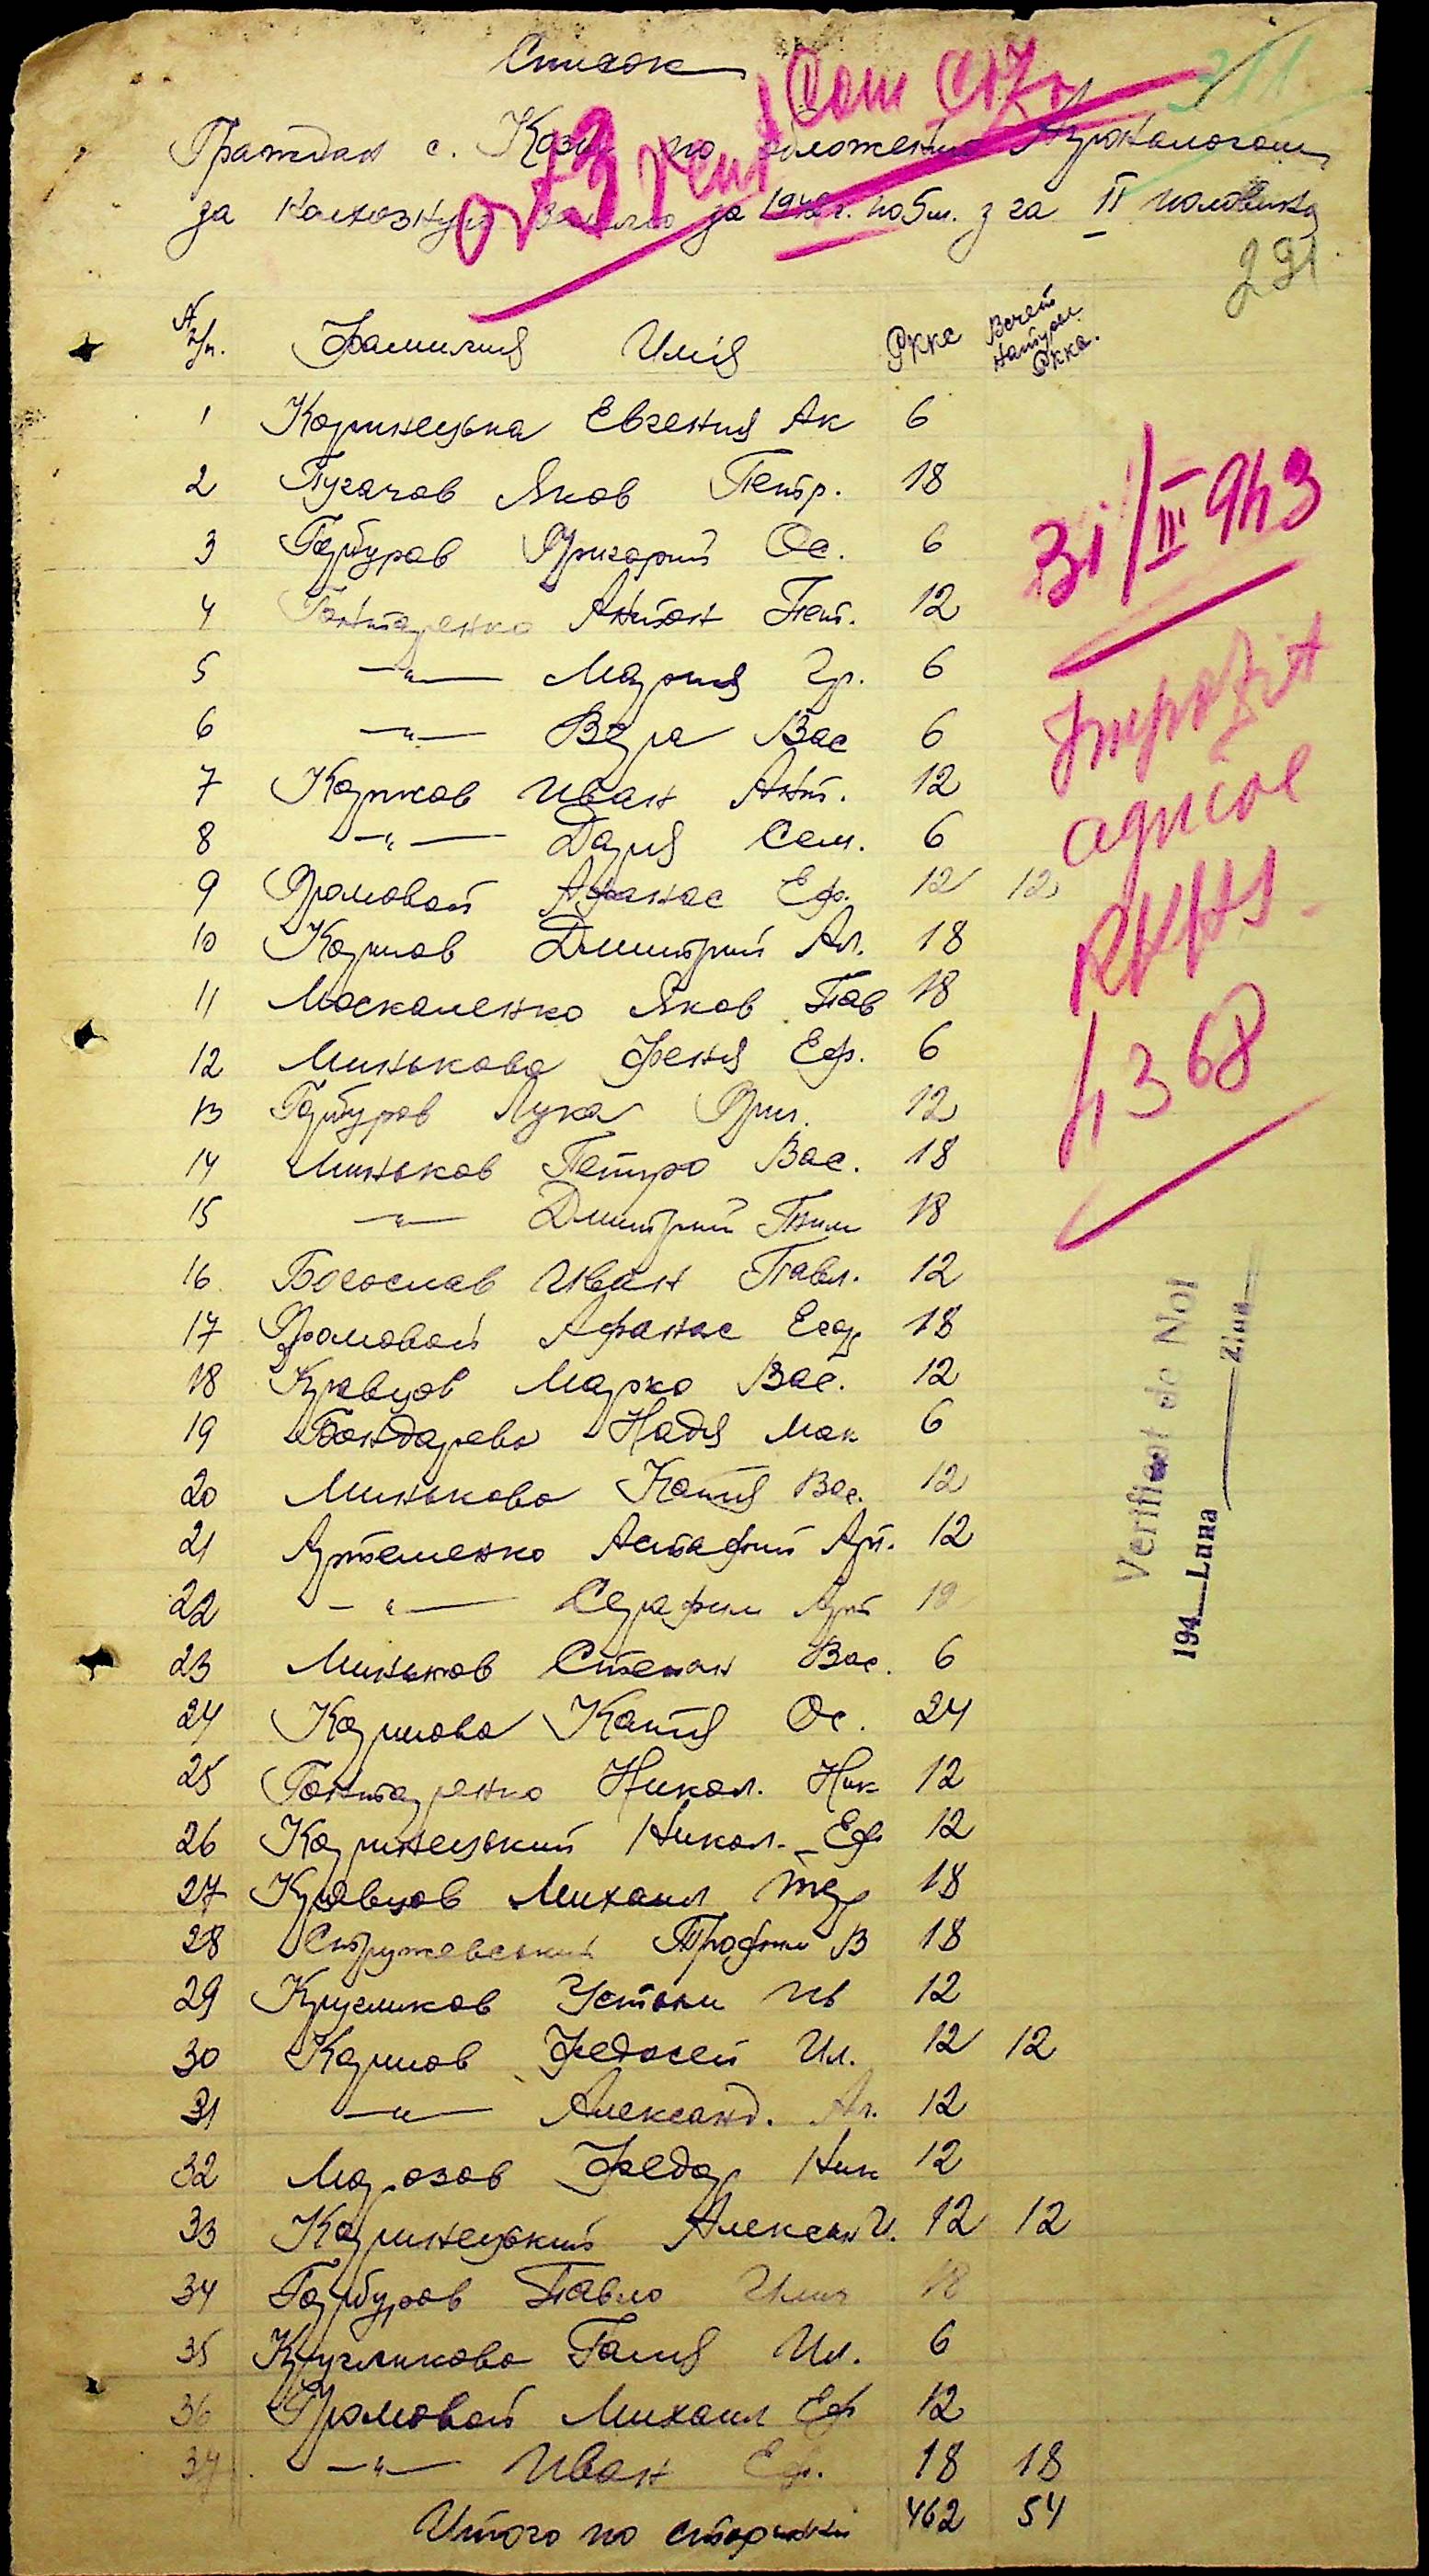 Список
Граждан с. по обложению
за колхозную землю за 1942 г. по 5 м. з га II половина
311
291
31/III 943
Impozit
agricol
RKKS
4368
№ п/п. Фамилия Имія Ркке
1 Каринецька Евгения Ак 6
2 Пугачов Яков Петр. 18
3 Гарбуров Григорий Ос. 6
4 Гонтаренко Антон Пет. 12
5 —"— Мария Гр. 6
6 —"— Вера Вас 6
7 Карпов Иван Ант. 12
8 —"— Дария Сем. 6
9 Громовой Афанас Еф. 12 12
10 Карпов Дмитрий Ал. 18
11 Москаленко Яков Пав 18
12 Минькова Феня Еф. 6
13 Гарбуров Лука Григ. 12
14 Миньков Петро Вас. 18
15 —"— Дмитрий Тим 18
16 Богослав Иван Павл. 12
17 Громовой Афанас Егор 18
18 Кравцов Марко Вас. 12
19 Бондарева Надя Мак 6
20 Минькова Катя Вас. 12
21 Артеменко Астафий Арт. 12
22 —"— Серафим Арт
23 Миньков Степан Вас. 6
24 Карпова Катя Ос. 24
25 Гонтаренко Никол. Ник 12
26 Каринецький Никол. Еф 12
27 Кравцов Михаил 18
28 Стружевський Трофим В 18
29 Кругликов Устим Ив 12
30 Карпов Федосей Ил. 12 12
31 —"— Александ. Ал. 12
32 Морозов Федор Ник 12
33 Каринецький Алексан И. 12 12
34 Гарбуров Павло Илич 18
35 Кругликова Галия Ил. 6
36 Громовой Михаил Еф 12
37 —"— Иван Еф. 18 18
Итого по сторинки 462 54
Verificat de Noi
194__Luna______Ziua__